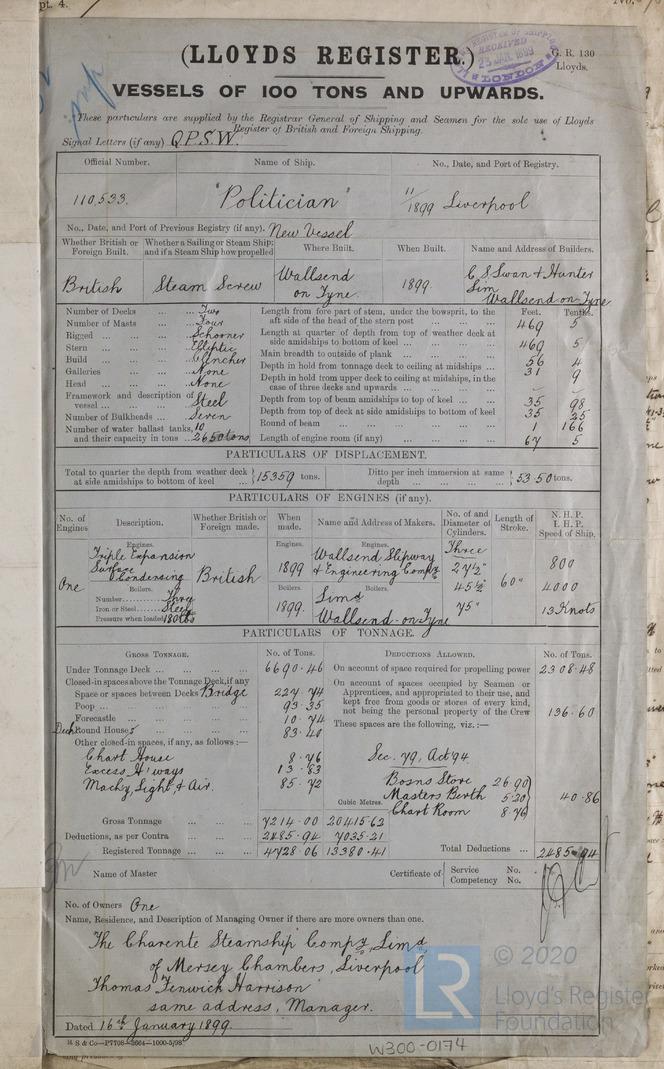 pt. 4.
No.
(LLOYDS REGISTER.)
REGISTER OF SHIPPING
RECEIVED
23 JAN. 1899
LONDON
G. R. 130
Lloyds.
VESSELS OF 100 TONS AND UPWARDS.
These particulars are supplied by the Registrar General of Shipping and Seamen for the sole use of Lloyds
Register of British and Foreign Shipping.
Signal Letters (if any) Q.P.S.W.
Official Number. Name of Ship. No., Date, and Port of Registry.
110,533. "Politician" 11/1899 Liverpool
No., Date, and Port of Previous Registry (if any). New Vessel
Whether British or Foreign Built. Whether a Sailing or Steam Ship; and if a Steam Ship how propelled Where Built. When Built. Name and Address of Builders.
British Steam Screw Wallsend on Tyne. 1899. C. S. Swan & Hunter Lim Wallsend on Tyne
Feet. Tenths.
Number of Decks ... ... Two
Number of Masts ... ... Four
Rigged ... ... ... Schooner
Stern ... ... ... Elliptic
Build ... ... ... Clencher
Galleries ... ... None
Head ... ... ... None
Framework and description of vessel ... ... ... Steel
Number of Bulkheads ... Seven
Number of water ballast tanks, 10
and their capacity in tons ... 2650 tons
Length from fore part of stem, under the bowsprit, to the aft side of the head of the stern post ... ... ... 469 5
Length at quarter of depth from top of weather deck at side amidships to bottom of keel ... ... ... 469 5
Main breadth to outside of plank ... ... ... 56 4
Depth in hold from tonnage deck to ceiling at midships ... 31 9
Depth in hold from upper deck to ceiling at midships, in the case of three decks and upwards ... ... ... – –
Depth from top of beam amidships to top of keel ... ... 35 98
Depth from top of deck at side amidships to bottom of keel 35 25
Round of beam ... ... ... 1 166
Length of engine room (if any) ... ... ... 67 5
PARTICULARS OF DISPLACEMENT.
Total to quarter the depth from weather deck at side amidships to bottom of keel ... ... 15359 tons. Ditto per inch immersion at same depth ... ... ... 53.50 tons.
PARTICULARS OF ENGINES (if any).
No. of Engines Description. Whether British or Foreign made. When made. Name and Address of Makers. No. of and Diameter of Cylinders. Length of Stroke. N. H. P. I. H. P. Speed of Ship.
Engines. Engines. Engines. Three
Triple Expansion 1899 Wallsend Slipway 27½" 800
Surface Condensing & Engineering Compy
One British 60"
Boilers. Boilers. Boilers. 45½" 4000
Number.......... Three 1899. Limd
Iron or Steel...... Steel 75" 13 Knots
Pressure when loaded 180 lbs Wallsend-on-Tyne
PARTICULARS OF TONNAGE.
GROSS TONNAGE. No. of Tons. DEDUCTIONS ALLOWED. No. of Tons.
Under Tonnage Deck ... ... ... ... 6690.46
Closed-in spaces above the Tonnage Deck, if any
Space or spaces between Decks Bridge 227.74
Poop ... ... ... 93.35
Forecastle ... ... ... 10.74
Deck Round Houses ... ... ... 83.40
Other closed-in spaces, if any, as follows :—
Chart House 8.76
Excess H'ways 13.83
Machy, Light & Air. 85.72
On account of space required for propelling power 2308.48
On account of spaces occupied by Seamen or Apprentices, and appropriated to their use, and kept free from goods or stores of every kind, not being the personal property of the Crew 136.60
These spaces are the following, viz. :—
Sec. 79, Act '94.
Bosns Store 26.90
Masters Berth 5.20 40.86
Chart Room 8.76
Cubic Metres.
Gross Tonnage ... ... ... 7214.00 20415.62
Deductions, as per Contra ... ... 2485.94 7035.21
Registered Tonnage ... ... 4728.06 13380.41
Total Deductions ... 2485.94
Name of Master Certificate of Service No. Competency No.
No. of Owners One
Name, Residence, and Description of Managing Owner if there are more owners than one.
The Charente Steamship Compy, Limd,
of Mersey Chambers, Liverpool
Thomas Fenwick Harrison
same address, Manager.
Dated 16th January 1899.
© 2020
LR Lloyd's Register
Foundation
W300-0174